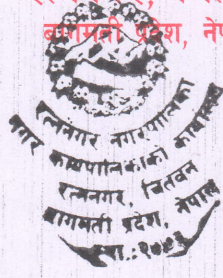 बागमती प्रदेश, ने
रत्ननगर नगरपालिका
नगर कार्यपालिकाको कार्यालय
रत्ननगर, चितवन
बागमती प्रदेश, नेपाल